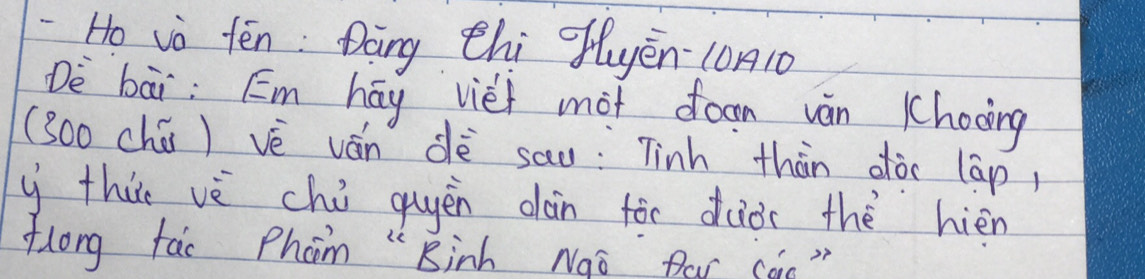 - Họ và tên : Đặng Thị Huyền - 10A10
Đề bài : Em hãy viết một đoạn văn khoảng
(300 chữ) về vấn đề sau : Tinh thần độc lập,
ý thức về chủ quyền dân tộc được thể hiện
trong tác phẩm “ Bình Ngô Đại Cáo ”